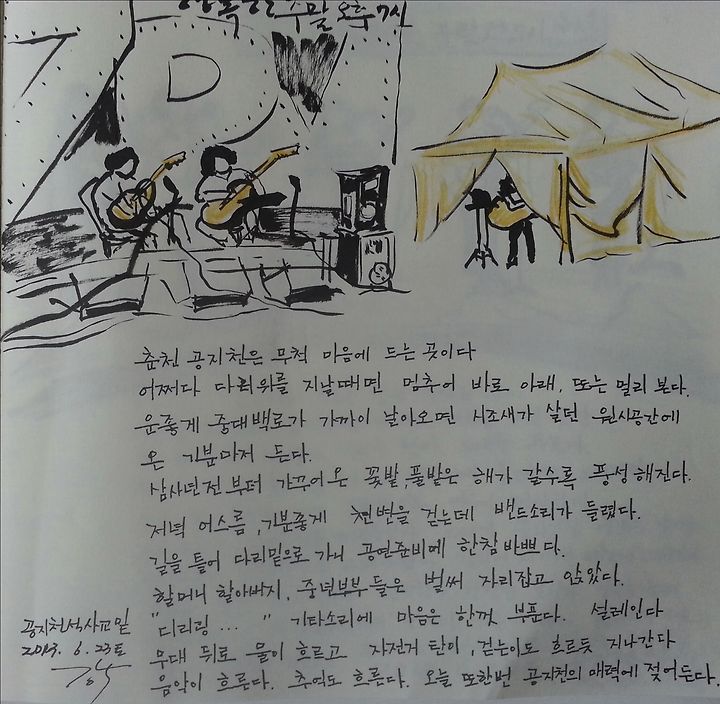 행복한 주말 오후 7시
7 D
춘천 공지천은 무척 마음에 드는 곳이다
어쩌다 다리위를 지날때면 멈추어 바로 아래, 또는 멀리 본다.
운좋게 중대백로가 가까이 날아오면 시조새가 살던 원시공간에
온 기분마저 든다.
삼사년전부터 가꾸어온 꽃밭, 풀밭은 해가 갈수록 풍성해진다.
저녁 어스름, 기분좋게 천변을 걷는데 밴드소리가 들렸다.
길을 틀어 다리밑으로 가니 공연준비에 한참 바쁘다.
할머니 할아버지, 중년부부들은 벌써 자리잡고 앉았다.
"디리링 ... " 기타소리에 마음은 한껏 부푼다. 설레인다
무대 뒤로 물이 흐르고 자전거 탄이, 걷는이도 흐르듯 지나간다
음악이 흐른다. 추억도 흐른다. 오늘 또한번 공지천의 매력에 젖어든다.
공지천석사교밑
6. 23토